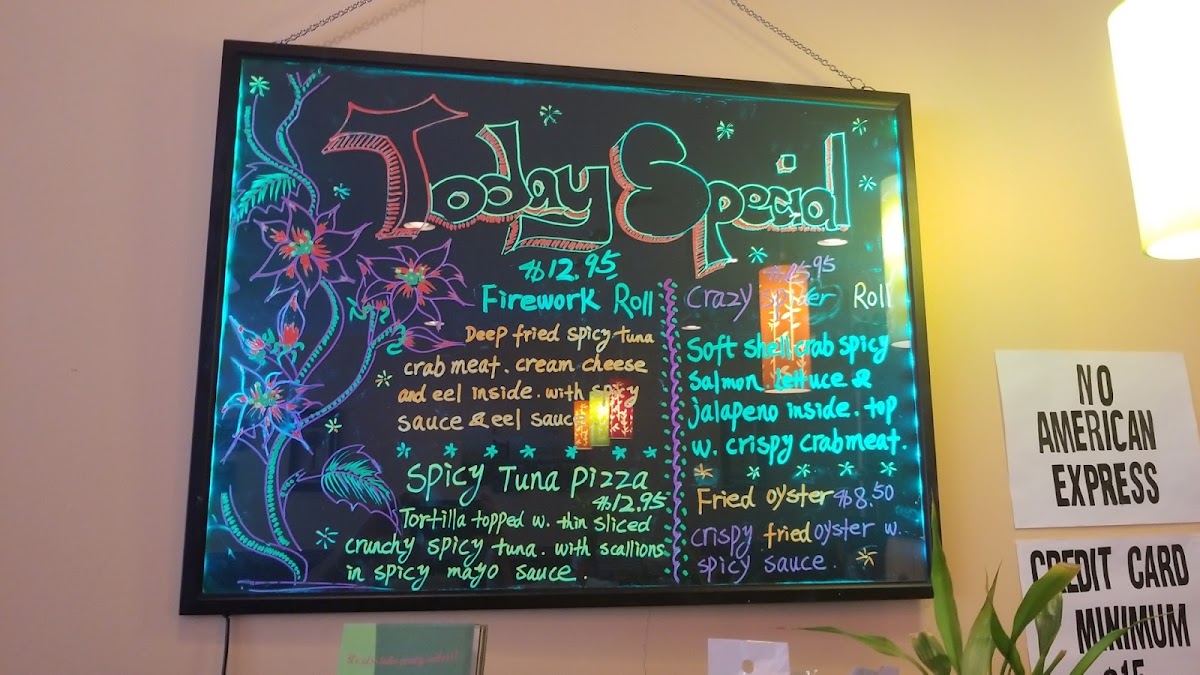 Today Special
$12.95
Firework Roll
Deep fried spicy tuna
crab meat. cream cheese
and eel inside. with spicy
sauce & eel sauce
Spicy Tuna Pizza
$12.95
Tortilla topped w. thin sliced
crunchy spicy tuna. with scallions
in spicy mayo sauce.
$15.95
Crazy Spider Roll
Soft shell crab spicy
salmon. lettuce &
jalapeno inside. top
w. crispy crabmeat.
Fried oyster $8.50
crispy fried oyster w.
spicy sauce.
NO
AMERICAN
EXPRESS
CREDIT CARD
MINIMUM
$15